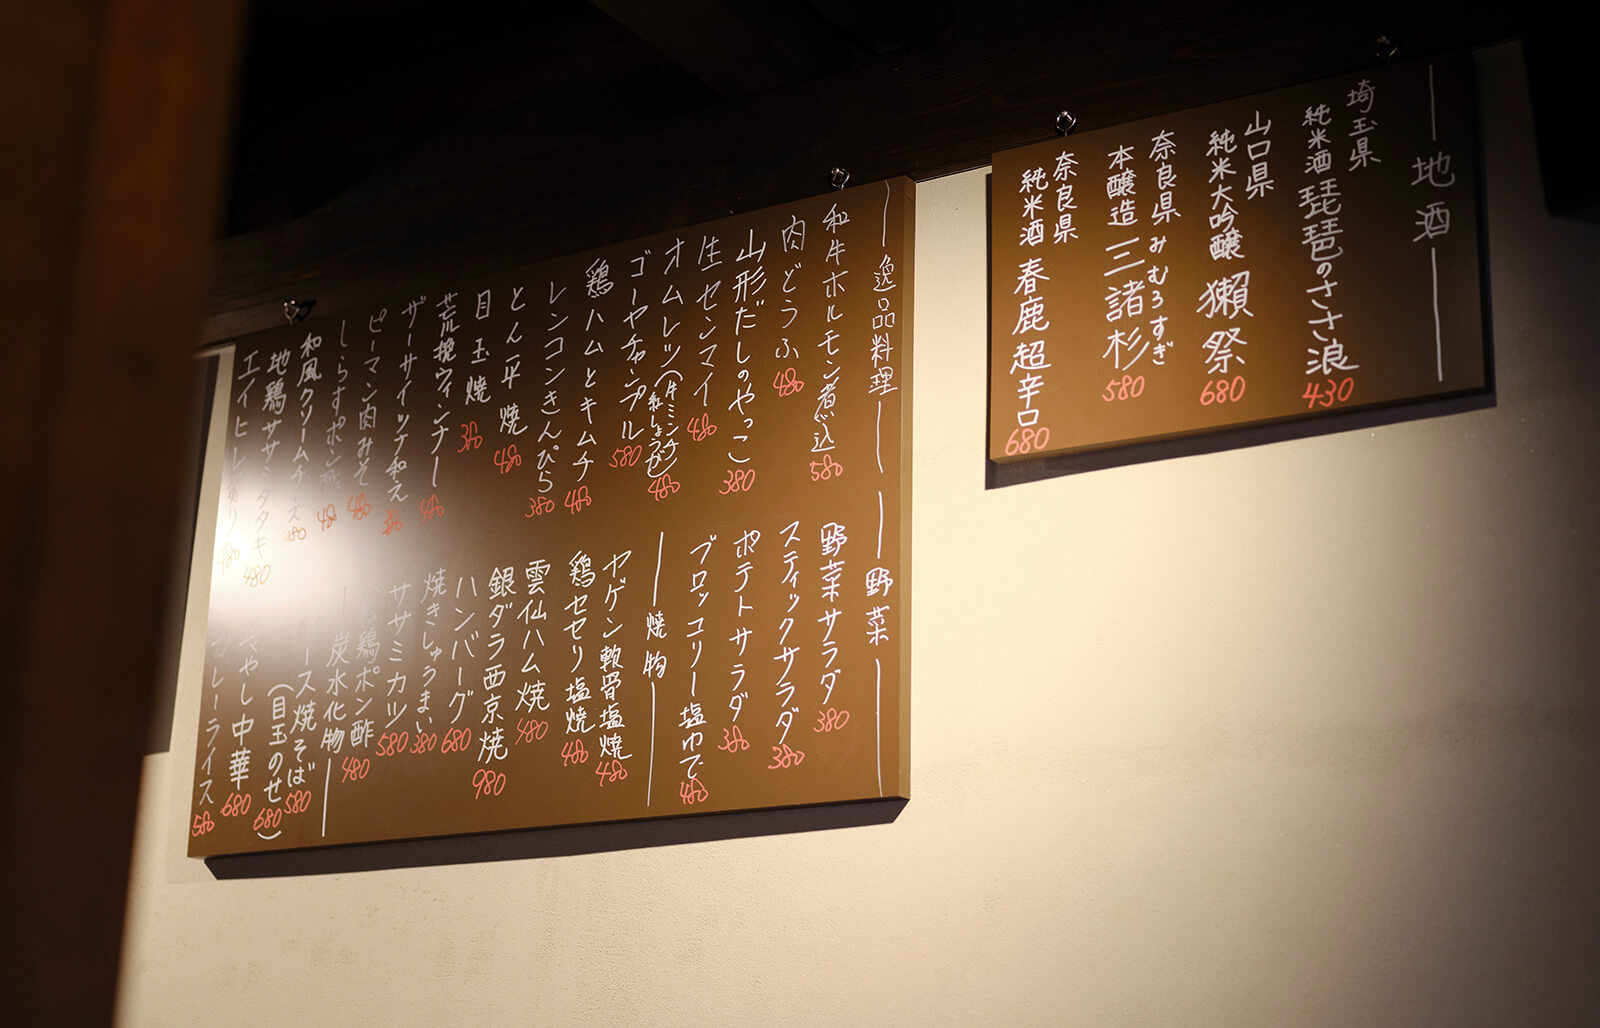 地酒
埼玉県
純米酒 琵琶のささ浪 430
山口県
純米大吟醸 獺祭 680
奈良県 みむろすぎ
本醸造 三諸杉 580
奈良県
純米酒 春鹿 超辛口 680
逸品料理
和牛ホルモン煮込 580
肉どうふ 480
山形だしのやっこ 380
生センマイ 480
オムレツ(牛ミンチ/紅しょうが) 480
ゴーヤチャンプル 580
鶏ハムとキムチ 480
レンコンきんぴら 380
とん平焼 480
目玉焼 380
荒挽ウィンナー 480
ザーサイッナ和え
ピーマン肉みそ 480
しらすポン酢 480
和風クリームチーズ 480
地鶏ササミタタキ 480
エイヒレ炙り 480
野菜
野菜サラダ 380
スティックサラダ 380
ポテトサラダ 380
ブロッコリー塩ゆで 480
焼物
ヤゲン軟骨塩焼 480
鶏セセリ塩焼 480
雲仙ハム焼 480
銀ダラ西京焼 980
ハンバーグ 680
焼きしゅうまい 380
ササミカツ 580
鶏ポン酢 480
炭水化物
ース焼そば 580
(目玉のせ 680)
冷やし中華 680
カレーライス 580